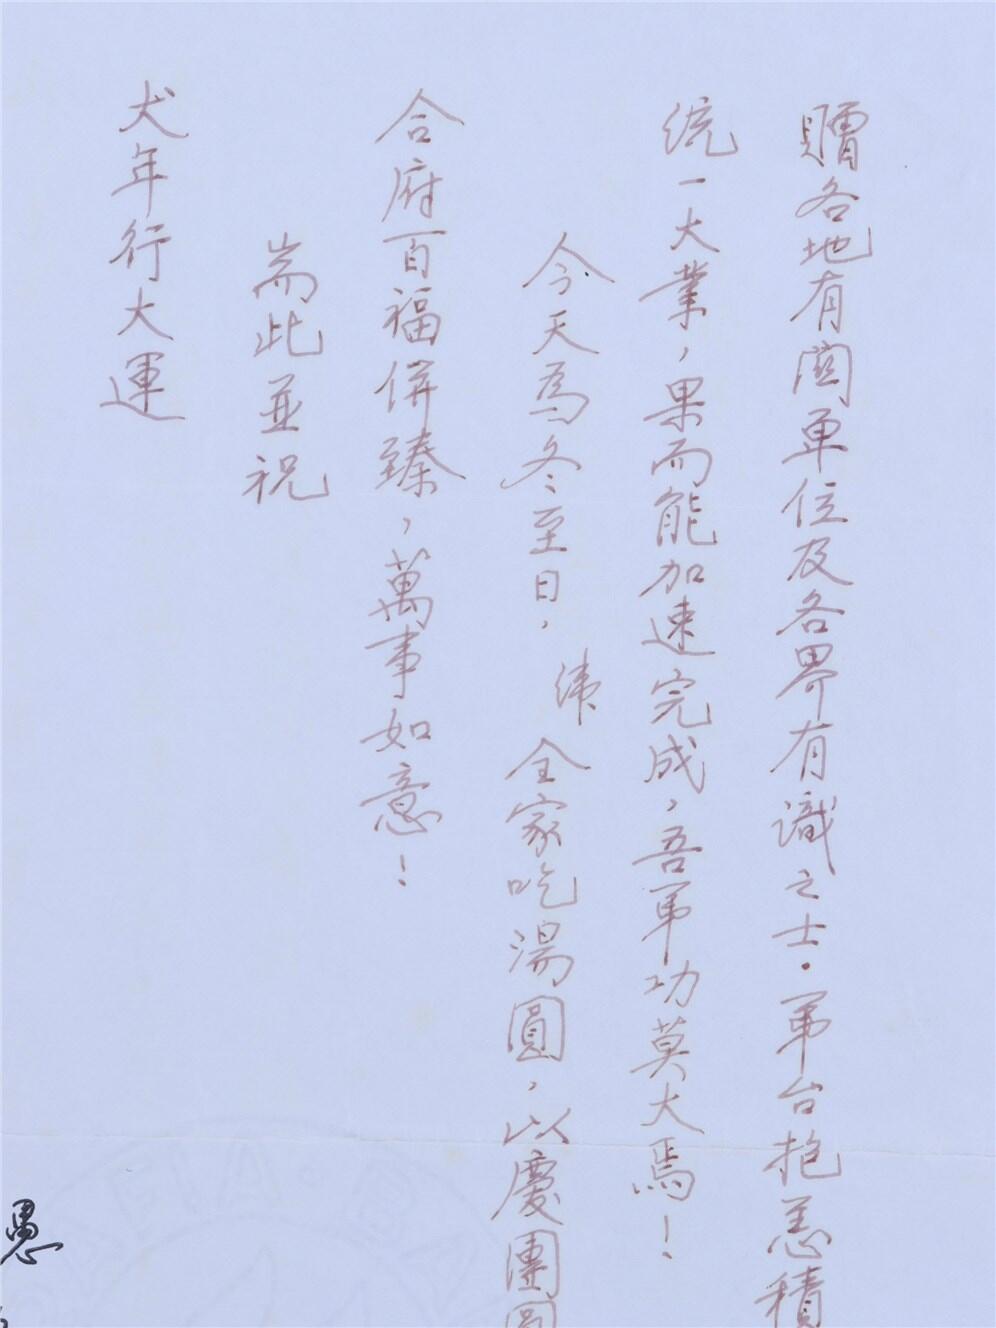 贈各地有関单位及各界有識之士。苐台抱恙積
統一大業，果而能加速完成，吾軍功莫大焉！
今天為冬至日，緯全家吃湯圓，以慶團圓
合府百福併臻，萬事如意！
耑此並祝
犬年行大運
愚